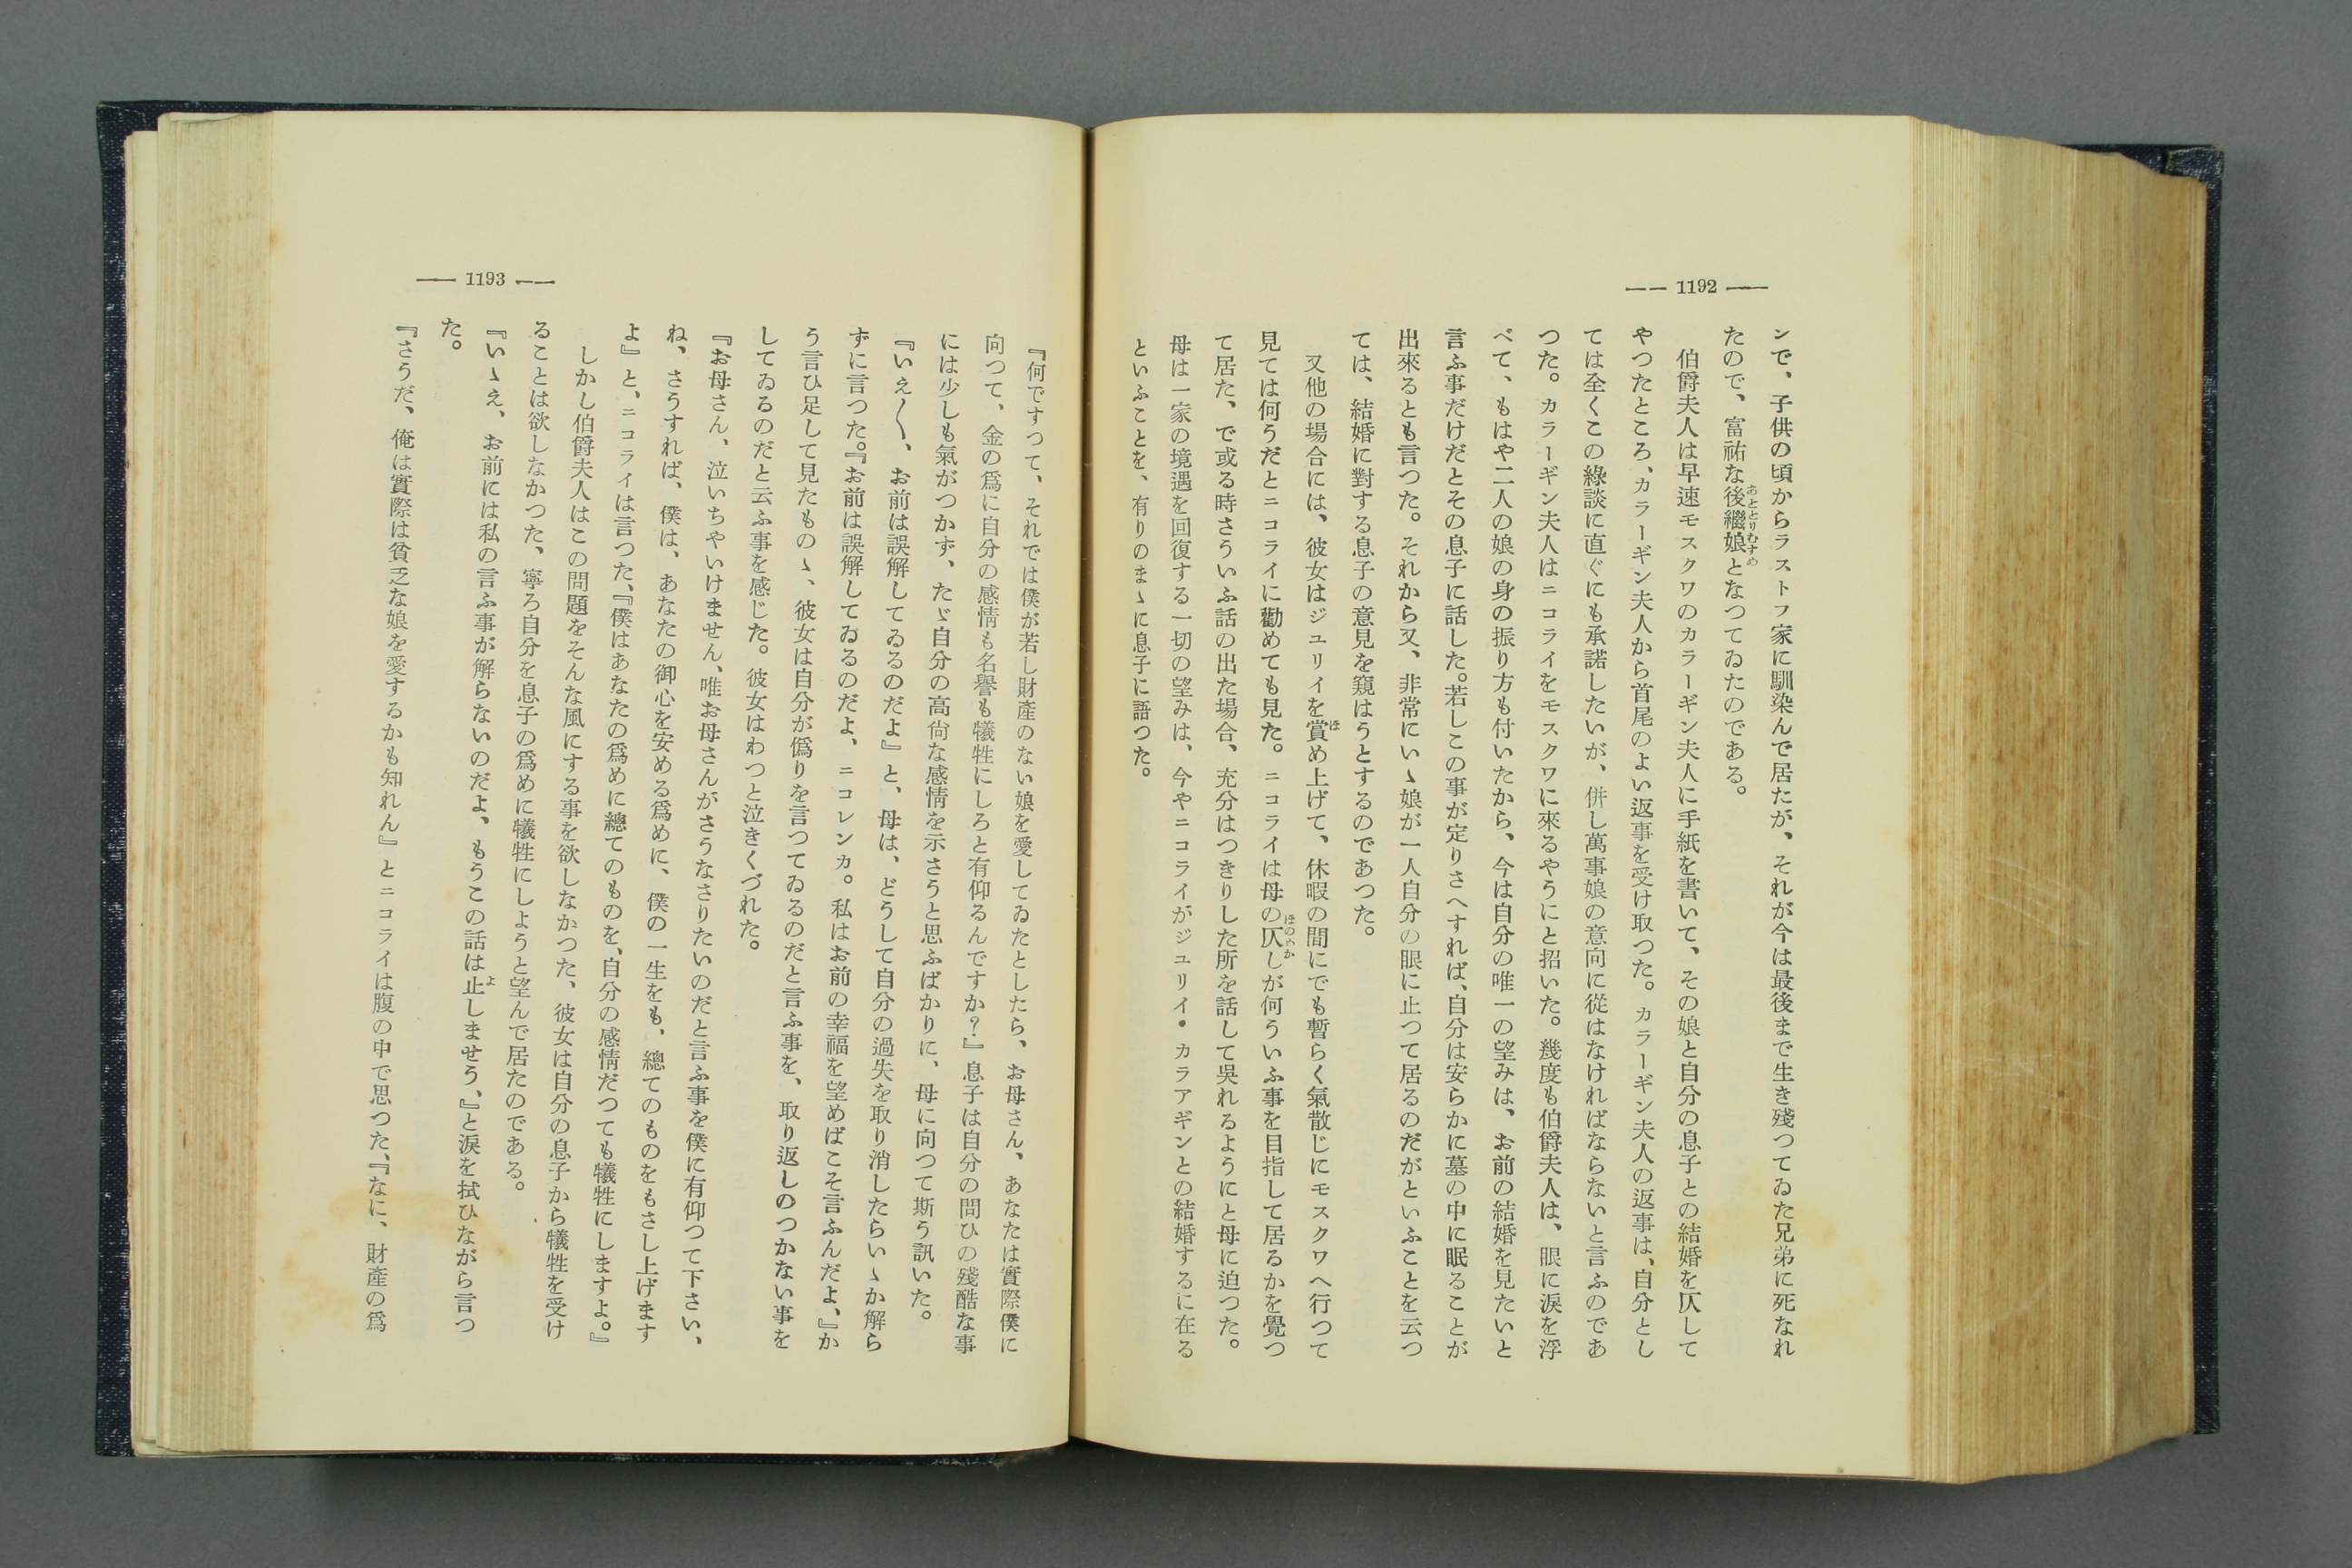 — 1192 —
ンで、子供の頃からラストフ家に馴染んで居たが、それが今は最後まで生き殘つてゐた兄弟に死なれ
たので、富祐な後繼娘となつてゐたのである。
あととりむすめ
伯爵夫人は早速モスクワのカラーギン夫人に手紙を書いて、その娘と自分の息子との結婚を仄して
やつたところ、カラーギン夫人から首尾のよい返事を受け取つた。カラーギン夫人の返事は、自分とし
ては全くこの緣談に直ぐにも承諾したいが、併し萬事娘の意向に從はなければならないと言ふのであ
つた。カラーギン夫人はニコライをモスクワに來るやうにと招いた。幾度も伯爵夫人は、眼に淚を浮
べて、もはや二人の娘の身の振り方も付いたから、今は自分の唯一の望みは、お前の結婚を見たいと
言ふ事だけだとその息子に話した。若しこの事が定りさへすれば、自分は安らかに墓の中に眠ることが
出來るとも言つた。それから又、非常にいゝ娘が一人自分の眼に止つて居るのだがといふことを云つ
ては、結婚に對する息子の意見を窺はうとするのであつた。
又他の場合には、彼女はジユリイを賞め上げて、休暇の間にでも暫らく氣散じにモスクワへ行つて
ほ
見ては何うだとニコライに勸めても見た。ニコライは母の仄しが何ういふ事を目指して居るかを覺つ
ほのめか
て居た、で或る時さういふ話の出た場合、充分はつきりした所を話して吳れるようにと母に迫つた。
母は一家の境遇を回復する一切の望みは、今やニコライがジユリイ・カラアギンとの結婚するに在る
といふことを、有りのまゝに息子に語つた。
— 1193 —
『何ですつて、それでは僕が若し財產のない娘を愛してゐたとしたら、お母さん、あなたは實際僕に
向つて、金の爲に自分の感情も名譽も犧牲にしろと有仰るんですか?』息子は自分の問ひの殘酷な事
には少しも氣がつかず、たゞ自分の高尙な感情を示さうと思ふばかりに、母に向つて斯う訊いた。
『いえ〱、お前は誤解してゐるのだよ』と、母は、どうして自分の過失を取り消したらいゝか解ら
ずに言つた。『お前は誤解してゐるのだよ、ニコレンカ。私はお前の幸福を望めばこそ言ふんだよ、』か
う言ひ足して見たものゝ、彼女は自分が僞りを言つてゐるのだと言ふ事を、取り返しのつかない事を
してゐるのだと云ふ事を感じた。彼女はわつと泣きくづれた。
『お母さん、泣いちやいけません、唯お母さんがさうなさりたいのだと言ふ事を僕に有仰つて下さい、
ね、さうすれば、僕は、あなたの御心を安める爲めに、僕の一生をも、總てのものをもさし上げます
よ』と、ニコライは言つた、『僕はあなたの爲めに總てのものを、自分の感情だつても犧牲にしますよ。』
しかし伯爵夫人はこの問題をそんな風にする事を欲しなかつた、彼女は自分の息子から犧牲を受け
ることは欲しなかつた、寧ろ自分を息子の爲めに犧牲にしようと望んで居たのである。
『いゝえ、お前には私の言ふ事が解らないのだよ、もうこの話は止しませう、』と淚を拭ひながら言つ
よ
た。
『さうだ、俺は實際は貧乏な娘を愛するかも知れん』とニコライは腹の中で思つた、『なに、財產の爲